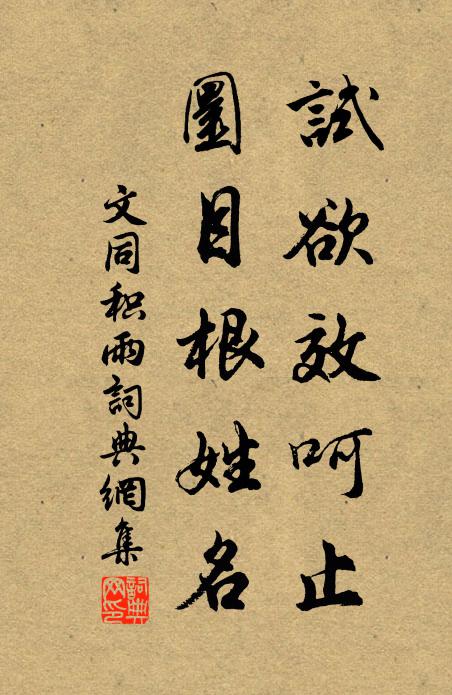 試欲效呵止
圖目根姓名
文同积雨詞典網集
詞典网印